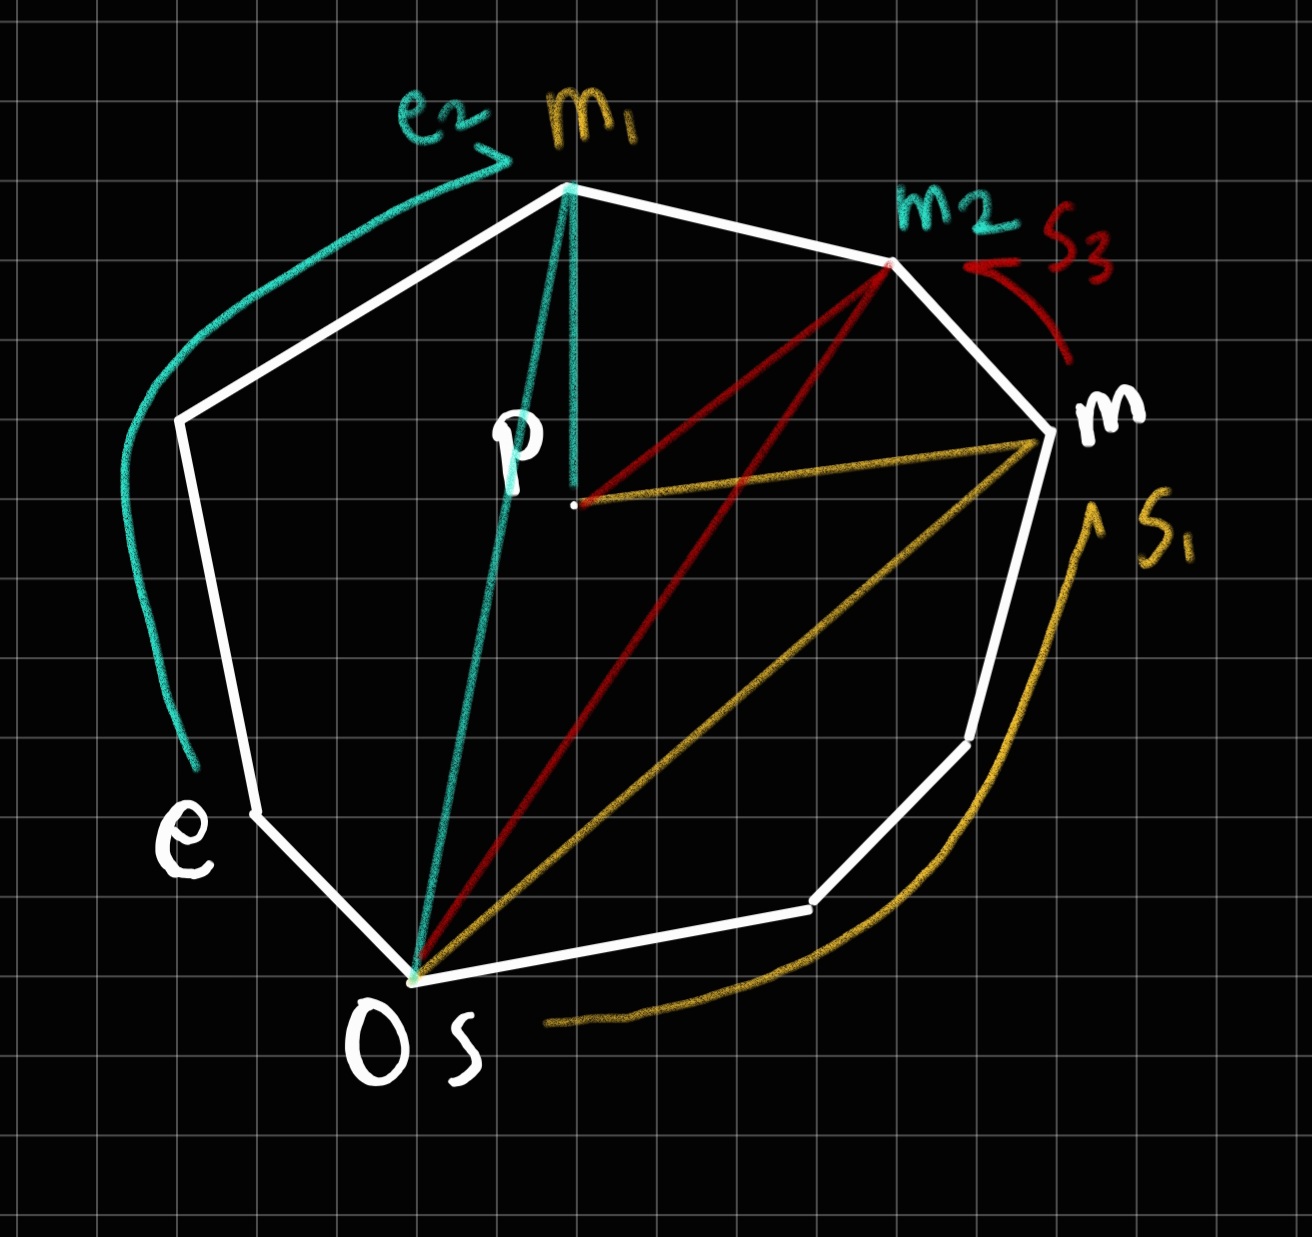 e2 m1
m2 s3
p
m
s1
e
0 s